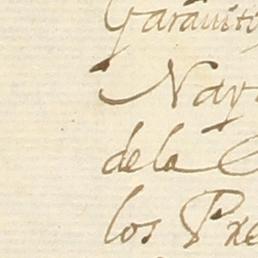 Garavit
Nay
dela
los Pre